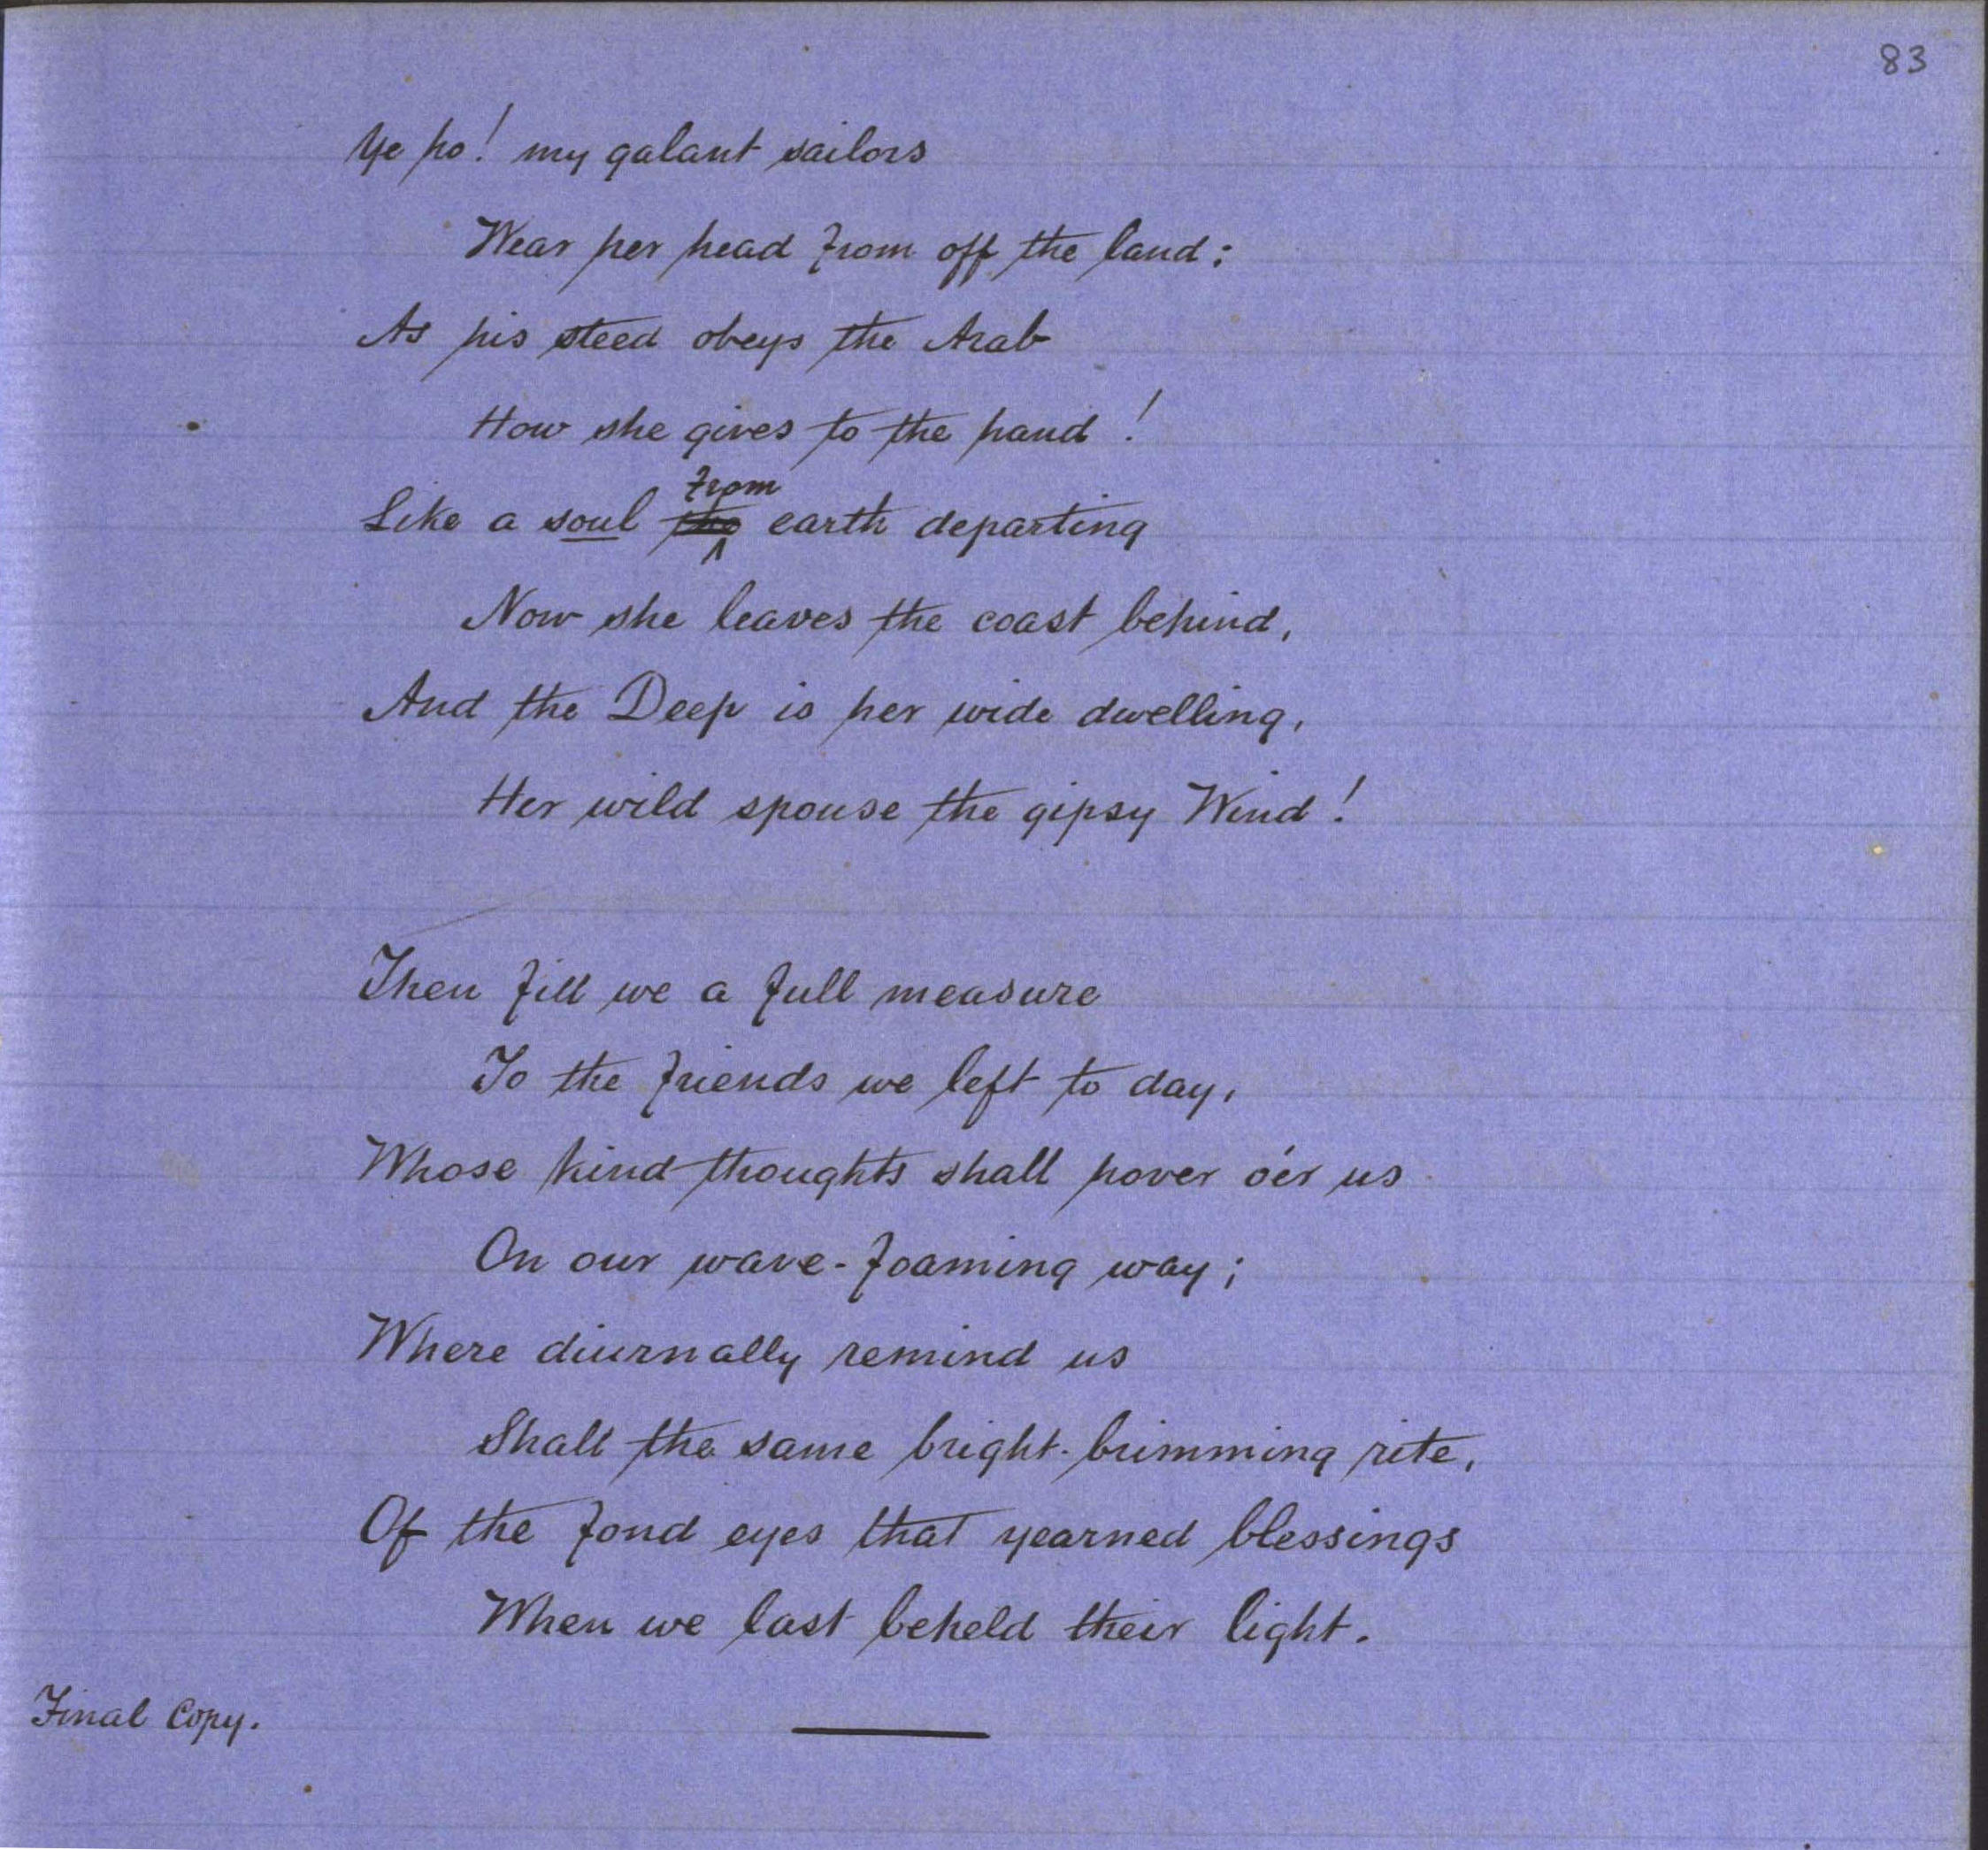 83
Ye ho! my galant sailors
Wear her head from off the land:
As his steed obeys the Arab
How she gives to the hand!
from
Like a soul the earth departing
Now she leaves the coast behind,
And the Deep is her wide dwelling,
Her wild spouse the gipsy Wind!
Then fill we a full measure
To the friends we left to day,
Whose kind thoughts shall hover o'er us
On our wave-foaming way;
Where diurnally remind us
Shall the same bright-brimming rite,
Of the fond eyes that yearned blessings
When we last beheld their light.
Final Copy.